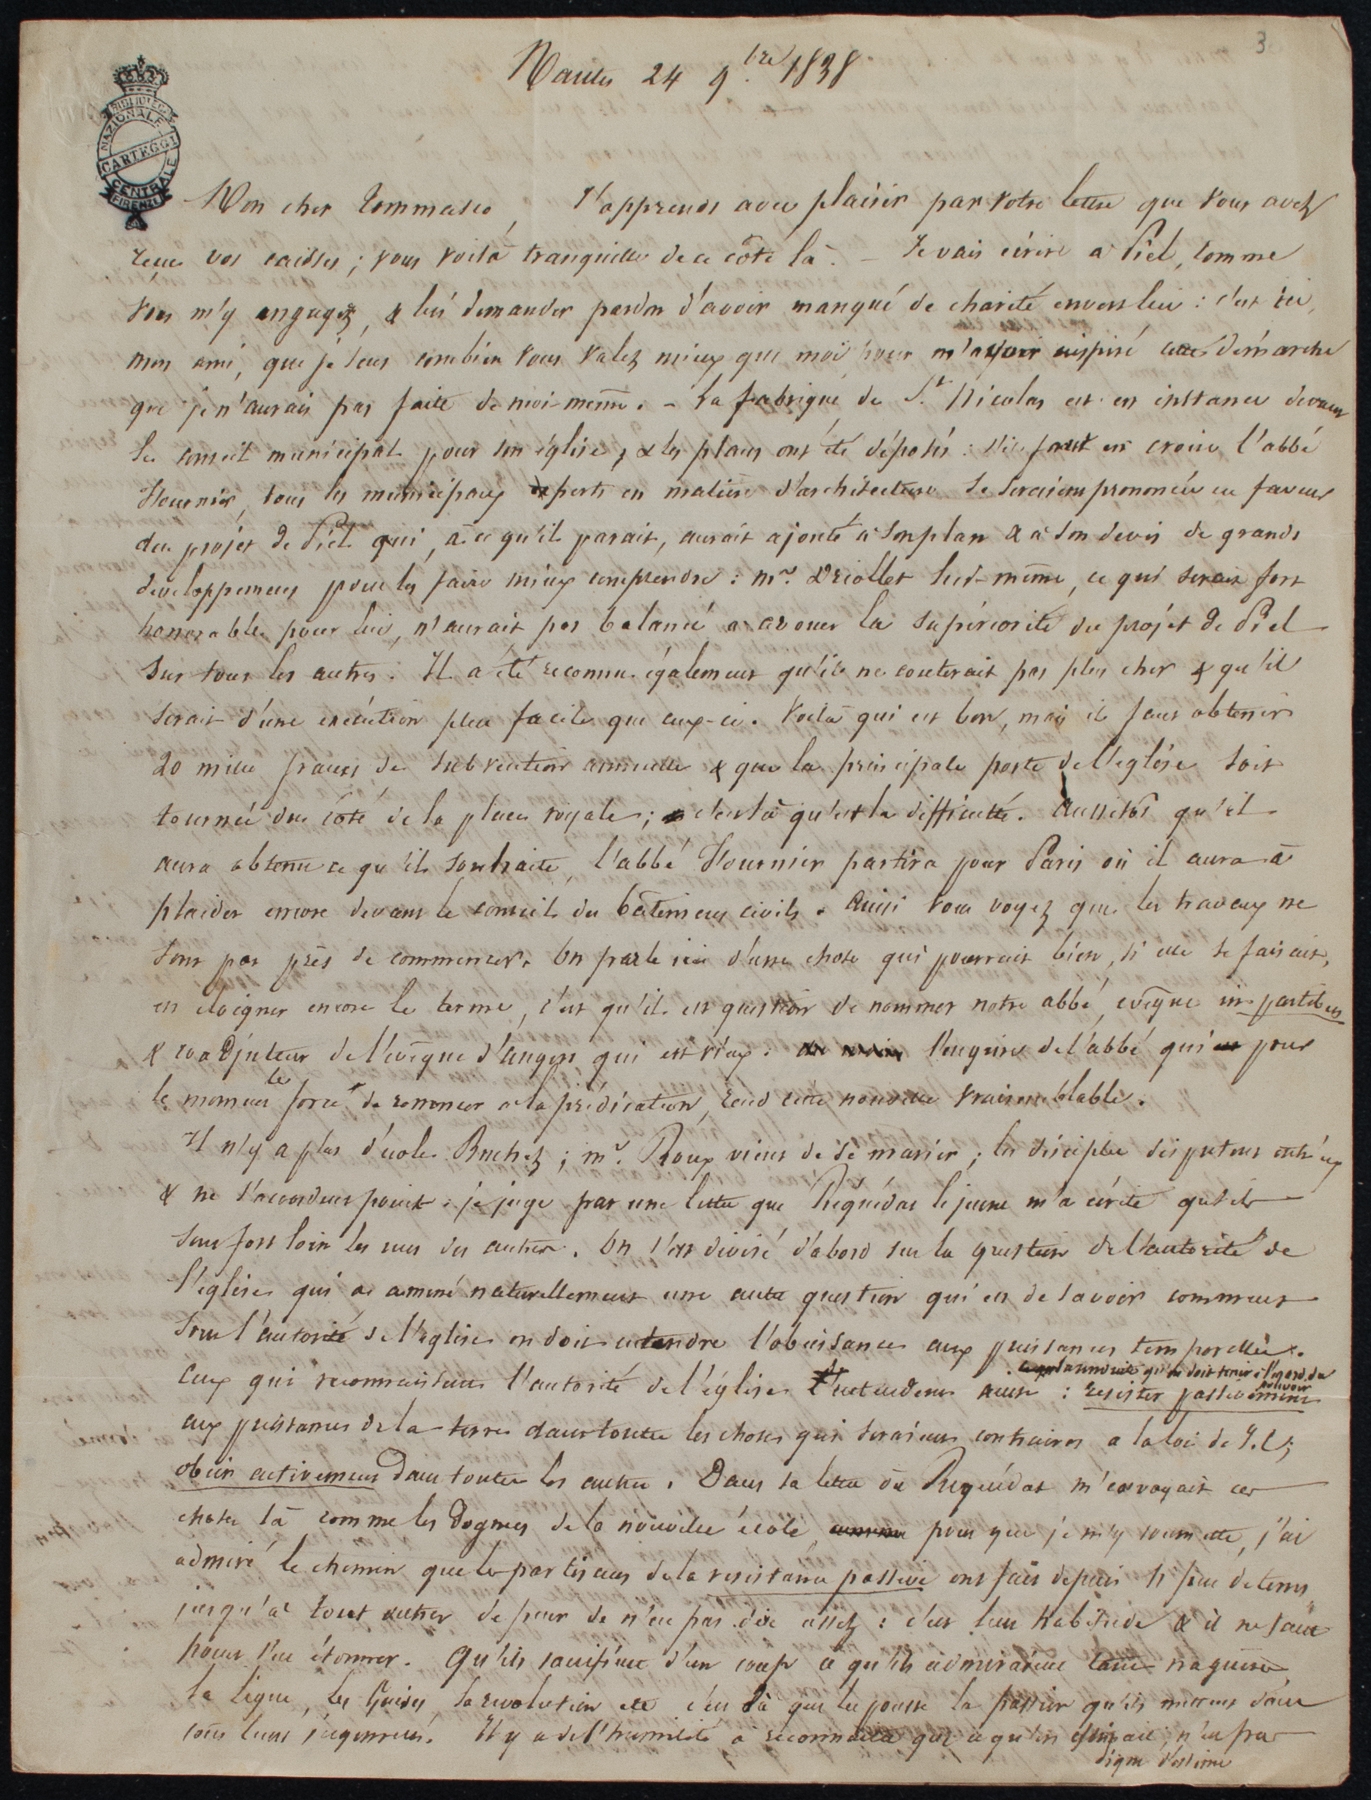 3
Nantes 24 9.bre 1838
BIBLIOTECA
NAZIONALE
CARTEGGI
CENTRALE
FIRENZE
Mon cher Tommaseo, J'apprends avec plaisir par votre lettre que vous avez
reçu vos caisses; vous voilà tranquille de ce côté là. – Je vais écrire à Piel, comme
vous m'y engagez, & lui demander pardon d'avoir manqué de charité envers lui: c'est ici,
mon ami, que je sens combien vous valez mieux que moi pour m'avoir inspiré cette démarche
que je n'aurais pas faite de moi-même. – La fabrique de St. Nicolas est en instance devant
le conseil municipal pour son église, & les plans ont été déposés: s'il faut en croire l'abbé
Fournier, tous les municipaux experts en matière d'architecture se seraient prononcés en faveur
du projet de Piel qui, à ce qu'il parait, aurait ajouté à son plan & à son devis de grands
développemens pour les faire mieux comprendre: mr. Driollet lui-même, ce qui serait fort
honorable pour lui, n'aurait pas balancé à avouer la supériorité du projet de Piel
sur tous les autres. Il a été reconnu également qu'il ne couterait pas plus cher & qu'il
serait d'une exécution plus facile que ceux-ci. Voilà qui est bon, mais il faut obtenir
20 mille francs de subvention annuelle & que la principale porte de l'église soit
tournée du côté de la place royale; c'est là qu'est la difficulté. Aussitôt qu'il
aura obtenu ce qu'il souhaite, l'abbé Fournier partira pour Paris où il aura à
plaider encore devant le conseil des bâtimens civils. Ainsi vous voyez que les travaux ne
sont pas près de commencer. On parle ici d'une chose qui pourrait bien, si elle se faisait,
en eloigner encore le terme, c'est qu'il est question de nommer notre abbé, evêque in partibus
& coadjuteur de l'evêque d'angers qui est vieux. l'enguine de l'abbé qui pour
le moment le force de renoncer à la prédication, rend cette nouvelle vraisemblable.
Il n'y a plus d'école Buchez; mr. Roux vient de se marier; les disciples disputent entr'eux
& ne s'accordent point. je juge par une lettre que Réquédat le jeune m'a écrite qu'ils
sont fort loin les uns des autres. On s'est divisé d'abord sur la question de l'autorité de
l'église qui a amené naturellement une autre question qui est de savoir comment
sous l'autorité de l'église on doit entendre l'obeissance aux puissances temporelles.
Ceux qui reconnaissent l'autorité de l'église qu'on doit tenir à l'égard du pouvoir : resister passivement
aux puissances de la terre dans toutes les choses qui seraient contraires à la loi de J.C;
obéir activement dans toutes les autres. Dans sa lettre où Requédat m'envoyait ces
choses là comme les dogmes de la nouvelle école, pour que je m'y soumette, j'ai
admiré le chemin que les partisans de la resistance passive ont fait depuis si peu de tems
jusqu'à tout outrer de peur de n'en pas dire assez: c'est leur habitude & il ne faut
point s'en étonner. Qu'ils sacrifient d'un coup ce qu'ils admiraient tant naguère
la ligue, les Guises, la revolution etc c'est là que les pousse la passion qu'ils mettent dans
tous leurs jugemens. Il y a de l'humilité à reconnaitre que ce qu'on estimait, n'est pas
digne d'estime